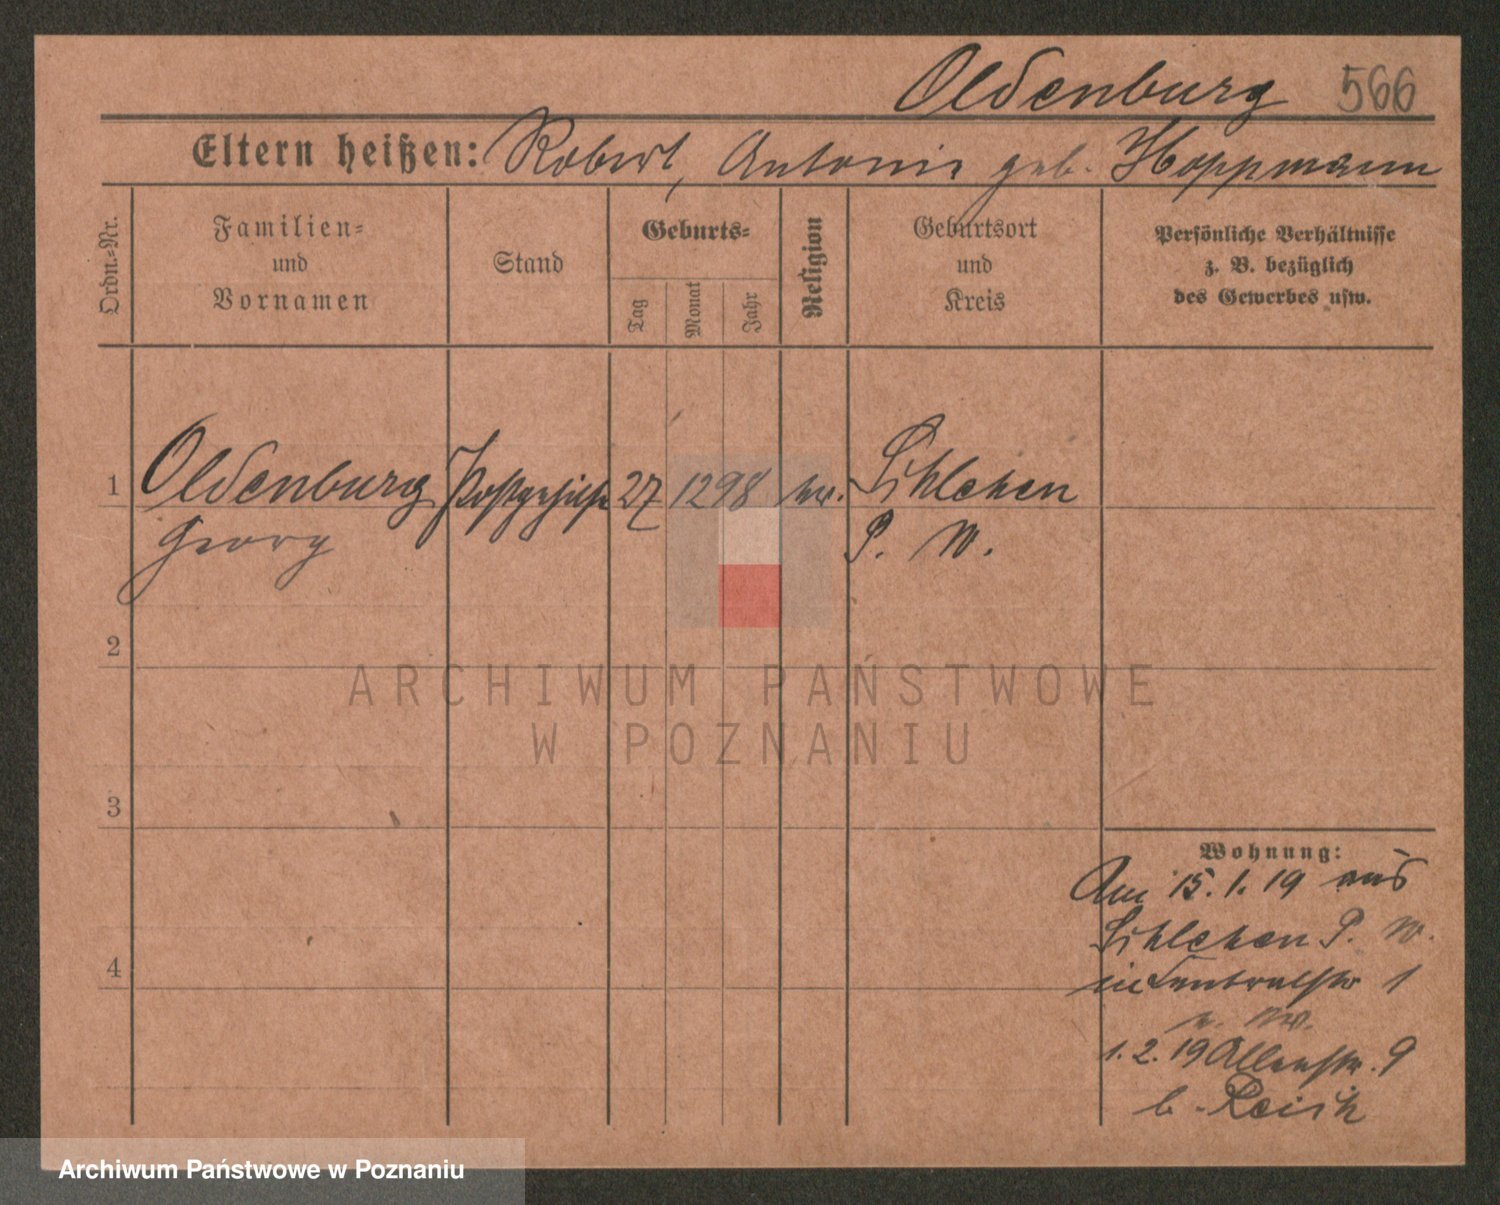 Oldenburg 566
Eltern heißen: Robert, Antonie geb. Hoppmann
Ordn.-Nr.
Familien-
und
Vornamen
Stand
Geburts-
Tag
Monat
Jahr
Religion
Geburtsort
und
Kreis
Persönliche Verhältnisse
z. B. bezüglich
des Gewerbes usw.
1 Oldenburg Postgehilfe 27 12 98 ev. Schlehen
Georg P. W.
2
3
4
Wohnung:
Am 15.1.19 aus
Schlehen P. W.
in Zentralstr 1
1.2.19 9
b.
ARCHIWUM PAŃSTWOWE
W POZNANIU
Archiwum Państwowe w Poznaniu